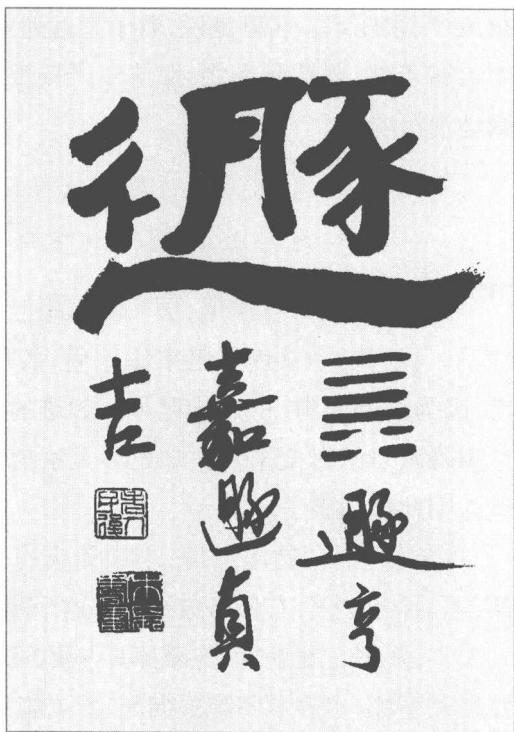 遯
䷠遯亨
嘉遯貞
吉